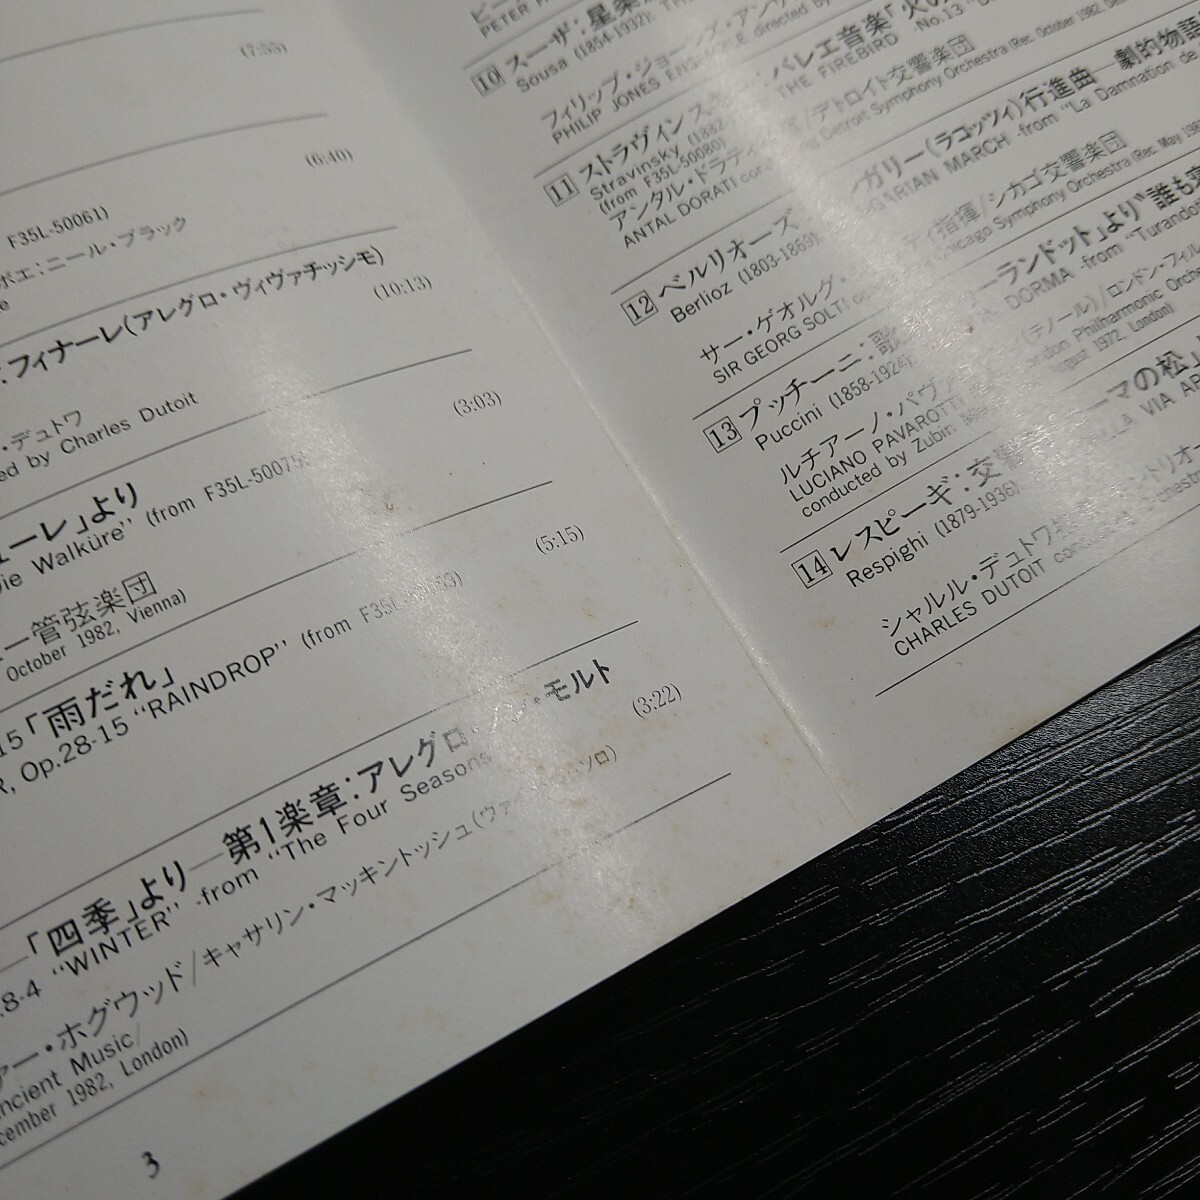 (7:55)
(6:40)
F35L-50061)
ボエ:ニール・ブラック
:フィナーレ(アレグロ・ヴィヴァチッシモ)
(10:13)
・デュトワ
ed by Charles Dutoit
(3:03)
ューレ」より
Die Walküre" (from F35L-50075
ー管弦楽団
October 1982, Vienna)
(5:15)
15「雨だれ」
R, Op.28-15 "RAINDROP" (from F35L-
モルト
(3:22)
「四季」より―第1楽章:アレグロ
.8-4 "WINTER" -from "The Four Seasons
ァー・ホグウッド/キャサリン・マッキントッシュ(ヴァ ソロ)
ncient Music/
cember 1982, London)
3
PETER
10 スーザ:星
Sousa (1854-1932):
フィリップ・ジョーンズ・アンサ
PHILIP JONES ENSEMBLE directed by
11 ストラヴィンスキ バレエ音楽「火の
Stravinsky (1882- THE FIREBIRD -No.13
(from F35L-50080)
アンタル・ドラティ デトロイト交響楽団
ANTAL DORATI con Detroit Symphony Orchestra (Rec. October 1982, De
12 ベルリオーズ ンガリー(ラコッツィ)行進曲―劇的物語
Berlioz (1803-1869) GARIAN MARCH -from "La Damnation de
サー・ゲオルグ・ ティ指揮/シカゴ交響楽団
SIR GEORG SOLTI Chicago Symphony Orchestra (Rec. May 198
13 プッチーニ:歌 ーランドット」より"誰も
Puccini (1858-1924) DORMA -from "Turando
ルチアーノ・パヴァ (テノール)/ロンドン・フィル
LUCIANO PAVAROTTI ndon Philharmonic Orche
conducted by Zubin ugust 1972, London)
14 レスピーギ:交響 ーマの松」
Respighi (1879-1936) ELLA VIA
シャルル・デュトワ ントリオー
CHARLES DUTOIT con Orchestra